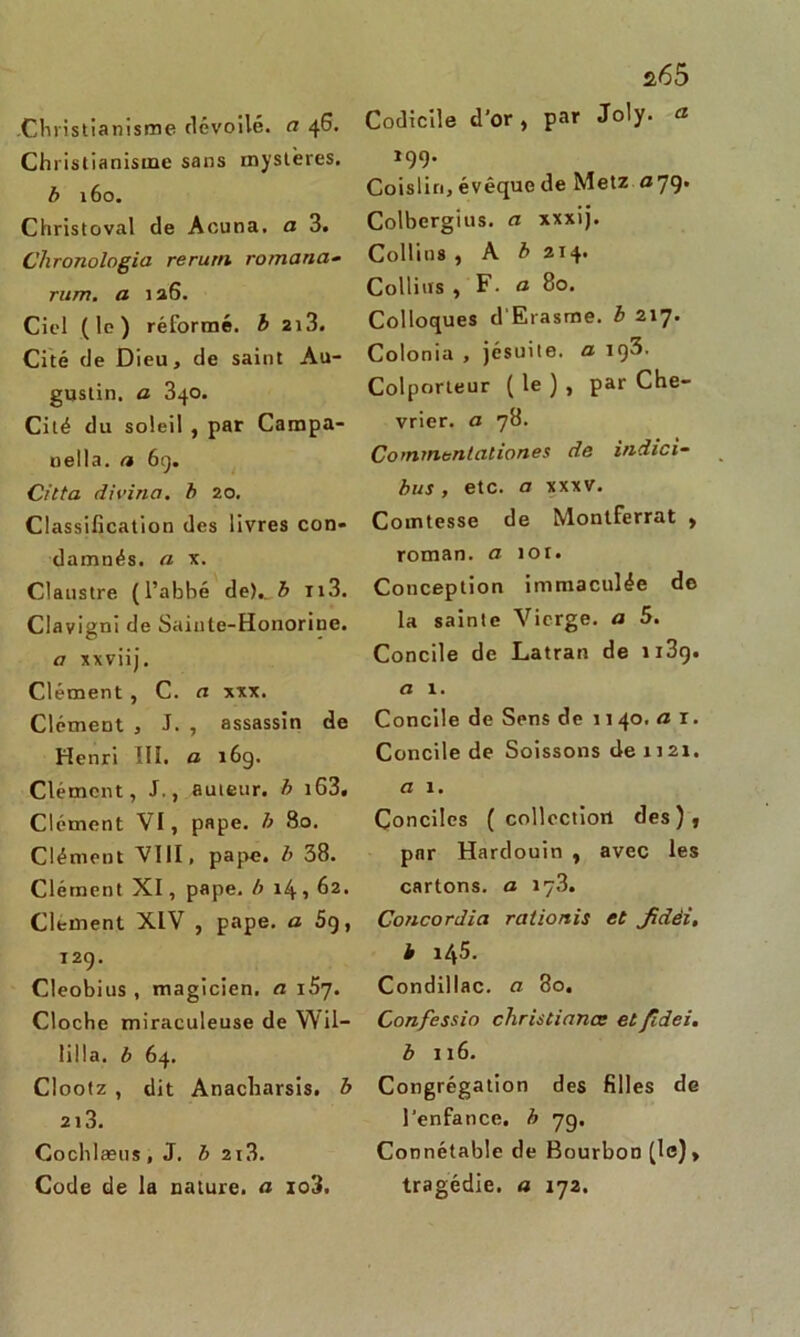 265
Christianisme dévoilé. a 46.
Christianisme sans mystères.
b 160.
Christoval de Acuna. a 3.
Chronologia rerum romana-
rum. a 126.
Ciel (le) réformé. b 213.
Cité de Dieu, de saint Au-
gustin. a 340.
Cité du soleil, par Campa-
nella. a 69.
Citta divina. b 20.
Classification des livres con-
damnés. a x.
Claustre (l'abbé de). b 113.
Clavigni de Sainte-Honorine.
a xxviij.
Clément, C. a xxx.
Clément, J., assassin de
Henri III. a 169.
Clément, J., auteur. b 163.
Clément VI, pape. b 80.
Clément VIII, pape. b 38.
Clément XI, pape. b 14, 62.
Clément XIV, pape. a 59,
129.
Cleobius, magicien. a 157.
Cloche miraculeuse de Wil-
lilla. b 64.
Clootz, dit Anacharsis. b
213.
Cochlæus, J. b 213.
Code de la nature. a 103.
Codicile d'or, par Joly. a
199.
Coislin, évêque de Metz a 79.
Colbergius. a xxxij.
Collins, A b 214.
Collius, F. a 80.
Colloques d'Erasme. b 217.
Colonia, jésuite. a 193.
Colporteur (le), par Che-
vrier. a 78.
Commentationes de indici-
bus, etc. a xxxv.
Comtesse de Montferrat,
roman. a 101.
Conception immaculée de
la sainte Vierge. a 5.
Concile de Latran de 1139.
a 1.
Concile de Sens de 1140. a 1.
Concile de Soissons de 1121.
a 1.
Conciles (collection des),
par Hardouin, avec les
cartons. a 173.
Concordia rationis et fidéi.
b 145.
Condillac. a 80.
Confessio christianæ et fidei.
b 116.
Congrégation des filles de
l'enfance. b 79.
Connétable de Bourbon (le),
tragédie. a 172.